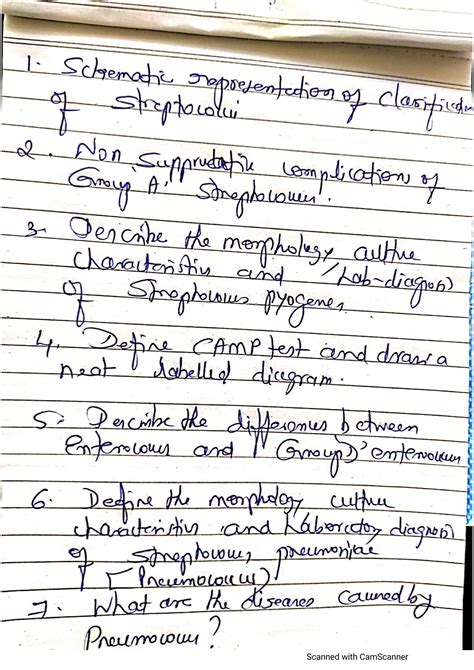 1. Schematic representation of Clasification
of Streptococci
2. Non Suppurative complication of
Group 'A' Streptococcus.
3. Describe the morphology culture
characteristics and /Lab-diagnosis
of Streptococcus pyogenes.
4. Define CAMP test and draw a
neat labelled diagram.
5. Describe the differences between
Enterococcus and "Group D" enterococcus
6. Define the morphology culture
characteristics and Laboratory diagnosis
of Streptococcus pneumoniae
[Pneumococcus)
7. What are the diseases caused by
Pneumococcus?
Scanned with CamScanner